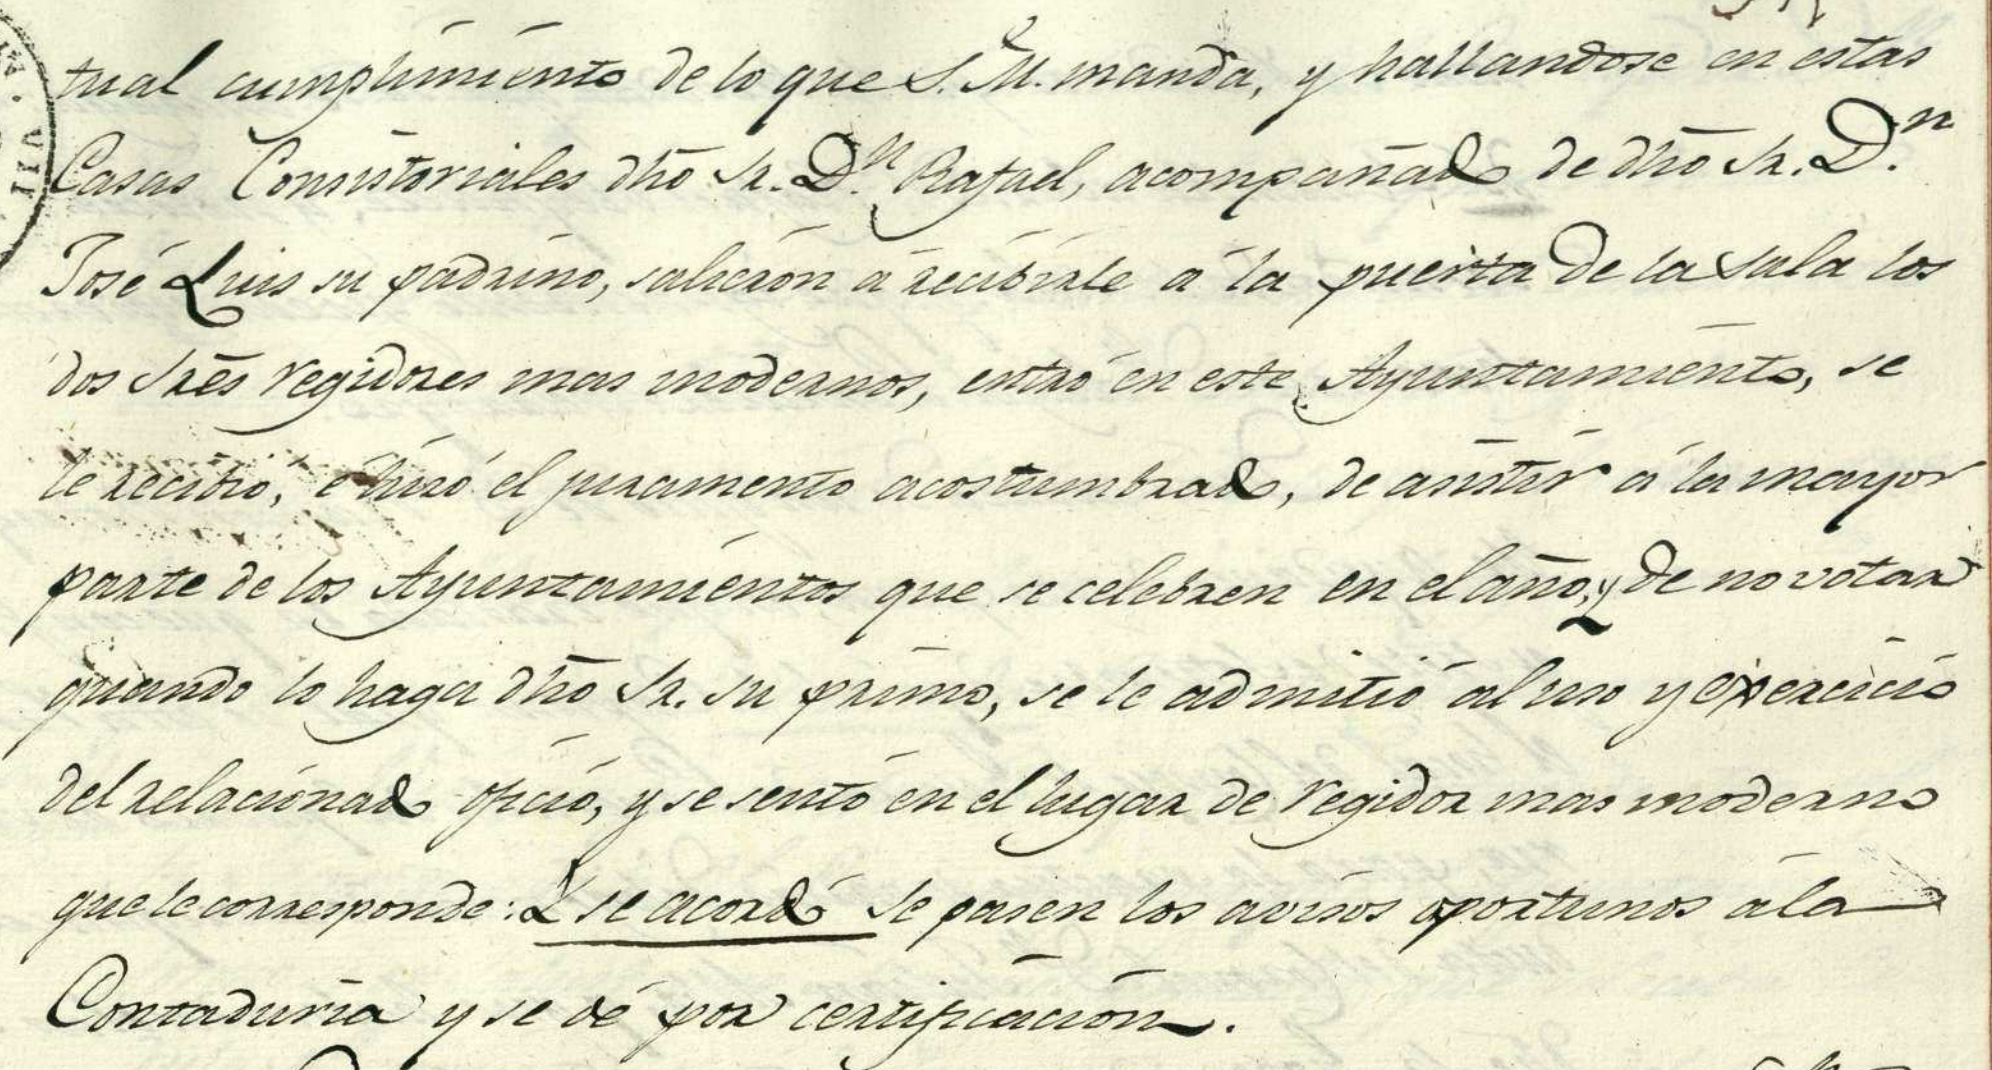 tual cumplimiento de lo que S. M. manda, y hallandose en estas
Casas Consistoriales dho Sr. Dn. Rafael, acompañado de dho Sr. Dn.
José Luis su padrino, salieron á recibirle á la puerta de la sala los
dos Sres regidores mas modernos, entró en este Ayuntamiento, se
le recibió, é hizo el juramento acostumbrado, de asistir á la mayor
parte de los Ayuntamientos que se celebren en el año, y de no votar
quando lo haga dho Sr. su primo, se le admitió al uso y exercicio
del relacionado oficio, y se sentó en el lugar de regidor mas moderno
que le corresponde: Y se acordó se pasen los avisos oportunos á la
Contaduría y se dé por certificación.